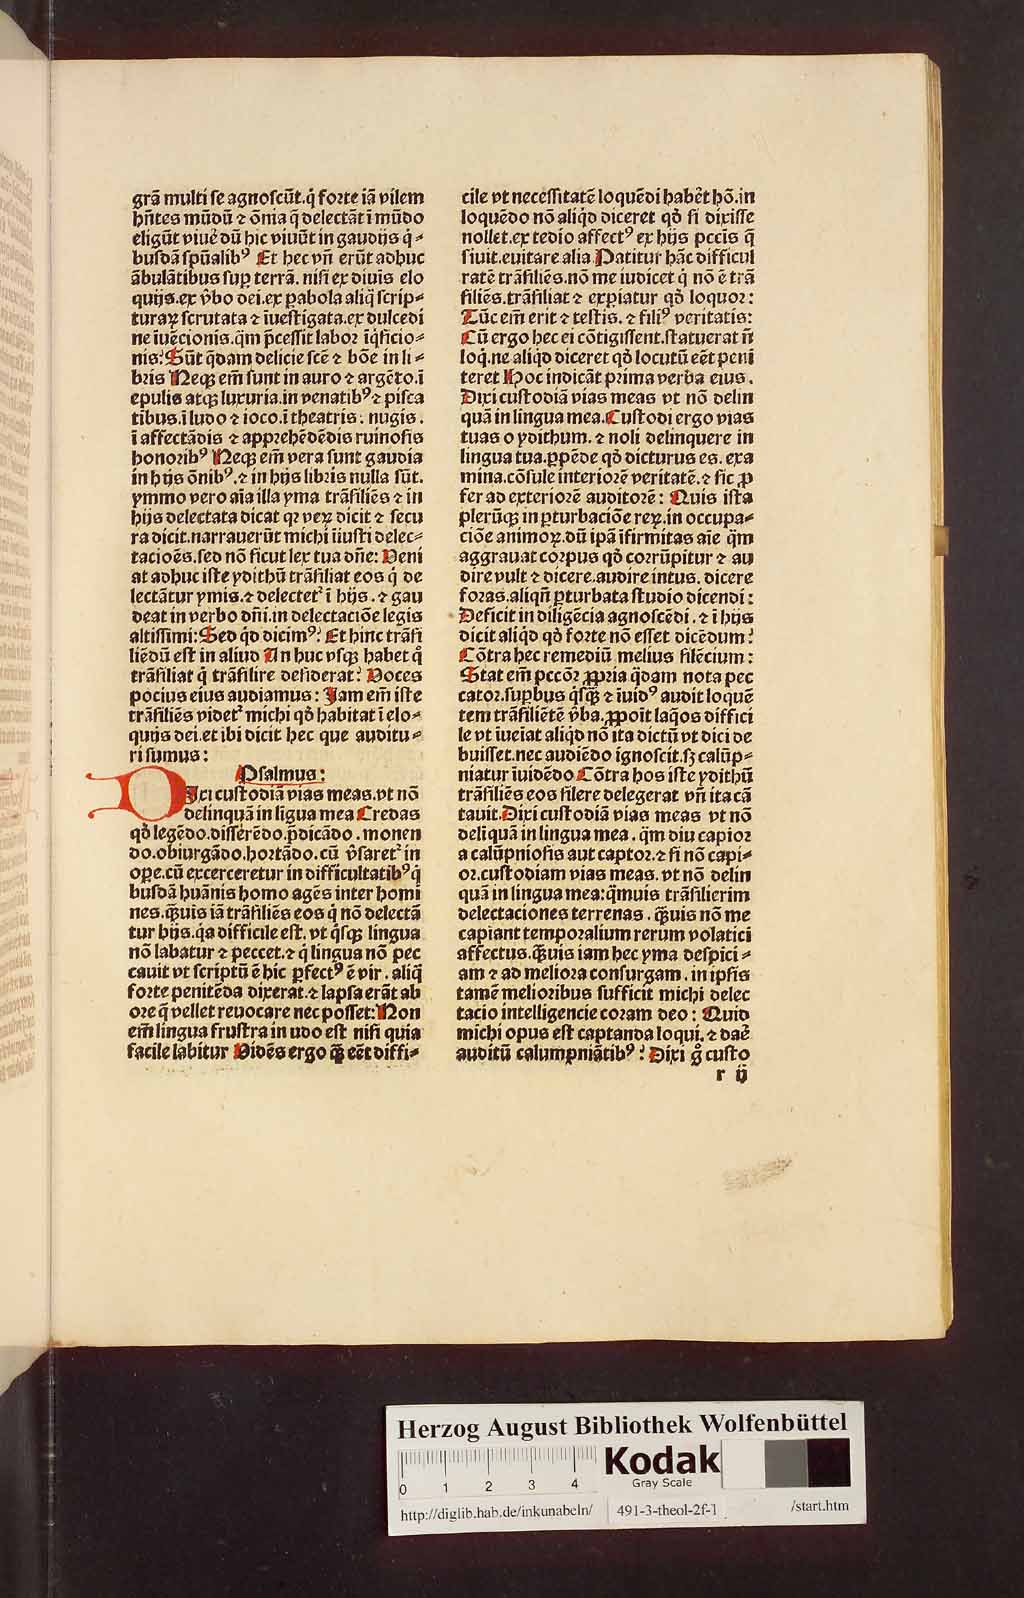 grã multi se agnoscũt. q̇ forte iã vilem
hñtes mũdũ ⁊ õnia q̃ delectãt ĩ mũdo
eligũt viuẽ dũ hic viuũt in gaudijs q̇-
busdã sp̃ualibꝰ Et hec vñ erũt adhuc
ãbulãtibus suꝑ terrã. nisi ex diuis elo
quijs. ex v̾bo dei. ex ꝑabola aliq̃ scrip-
turaꝝ scrutata ⁊ ĩuestigata. ex dulcedi
ne iuẽcionis. q̃m p̃cessit labor ĩq̇sicio-
nis: Sũt q̃dam delicie scẽ ⁊ bõe in li-
bris Neqꝫ em̃ sunt in auro ⁊ argẽto. ĩ
epulis atqꝫ luxuria. in venatibꝰ ⁊ pisca
tibus. ĩ ludo ⁊ ioco. ĩ theatris. nugis.
ĩ affectãdis ⁊ apprehẽdẽdis ruinosis
honoribꝰ Neqꝫ em̃ vera sunt gaudia
in hijs õnibꝰ. ⁊ in hijs libris nulla sũt.
ymmo vero aĩa illa yma trãsiliẽs ⁊ in
hijs delectata dicat qꝛ veꝝ dicit ⁊ secu
ra dicit. narrauerũt michi iniusti delec-
tacioẽs. sed nõ sicut lex tua dñe: Veni
at adhuc iste ydithũ trãsiliat eos q̇ de
lectãtur ymis. ⁊ delectetᷣ ĩ hijs. ⁊ gau
deat in verbo dñi. in delectaciõe legis
altissimi: Sed qͥd dicimꝰ: Et hinc trãsi
liẽdũ est in aliud An huc vsqꝫ habet q̊
trãsiliat q̇ trãsilire desiderat: Voces
pocius eius audiamus: Jam em̃ iste
trãsiliẽs videtᷣ michi qđ habitat ĩ elo-
quijs dei. et ibi dicit hec que auditu-
ri sumus:
Psalmus:
Dixi custodiã vias meas. vt nõ
delinquã in ligua mea Credas
qđ legẽdo. disserẽdo. p̃dicãdo. monen
do. obiurgãdo. hortãdo. cũ v̾saretᷣ in
oꝑe. cũ excerceretur in difficultatibꝰ q̇
busdã huãnis homo agẽs inter homi
nes. q̃uis iã trãsiliẽs eos q̇ nõ delectã
tur hijs. q̇a difficile est. vt q̇sqꝫ lingua
nõ labatur ⁊ peccet. ⁊ q̇ lingua nõ pec
cauit vt scriptũ ẽ hic ꝑfectꝰ ẽ vir. aliq̃
forte penitẽda dixerat. ⁊ lapsa erãt ab
ore q̃ vellet reuocare nec posset: Non
em̃ lingua frustra in vdo est nisi quia
facile labitur Vidẽs ergo q̃ꝫ eẽt diffi-
cile vt necessitatẽ loquẽdi habẽt hõ. in
loquẽdo nõ aliqͥd diceret qđ si dixisse
nollet. ex tedio affectꝰ ex hijs pccĩs q̃
siuit. euitare alia Patitur hãc difficul
ratẽ trãsiliẽs. nõ me iudicet q̇ nõ ẽ trã
siliẽs. trãsiliat ⁊ exꝑiatur qđ loquor:
Tũc em̃ erit ⁊ testis. ⁊ filiꝰ veritatis:
Cũ ergo hec ei cõtigissent. statuerat ñ
loq̇. ne aliqͥd diceret qđ locutũ eẽt peni
teret Hoc indicãt prima verba eius.
Dixi custodiã vias meas vt nõ delin
quã in lingua mea. Custodi ergo vias
tuas o ydithum. ⁊ noli delinquere in
lingua tua. ꝑpẽde qđ dicturus es. exa
mina. cõsule interiorẽ veritatẽ. ⁊ sic ꝓ
fer ad exteriorẽ auditorẽ: Quis ista
plerũqꝫ in ꝑturbaciõe reꝝ. in occupa-
ciõe animoꝝ. dũ ipã ĩfirmitas aĩe q̃m
aggrauat corpus qđ corrũpitur ⁊ au
dire vult ⁊ dicere. audire intus. dicere
foras. aliqñ ꝑturbata studio dicendi:
Deficit in diligẽcia agnoscẽdi. ⁊ ĩ hijs
dicit aliqͥd qđ forte nõ esset dicẽdum:
Cõtra hec remediũ melius silẽcium:
Stat em̃ pccõr ꝓpria q̃dam nota pec
cator. suꝑbus q̇sqꝫ ⁊ ĩuidꝰ audit loquẽ
tem trãsiliẽtẽ v̾ba. ꝓpoit laq̃os diffici
le vt iueĩat aliqͥd nõ ita dictũ vt dici de
buisset. nec audiẽdo ignoscit. sꝫ calũp-
niatur ĩuidẽdo Cõtra hos iste ydithũ
trãsiliẽs eos silere delegerat vñ ita cã
tauit. Dixi custodiã vias meas vt nõ
delĩquã in lingua mea. q̃m diu capior
a calũpniosis aut captor. ⁊ si nõ capi-
or. custodiam vias meas. vt nõ delin
quã in lingua mea: q̃muis trãsilierim
delectaciones terrenas. q̃uis nõ me
capiant temporalium rerum volatici
affectus. q̃uis iam hec yma despici-
am ⁊ ad meliora consurgam. in ipsis
tamẽ melioribus sufficit michi delec
tacio intelligencie coram deo: Quid
michi opus est captanda loqui. ⁊ daẽ
auditũ calumpniãtibꝰ: Dixi g̊ custo
r ij
Herzog August Bibliothek Wolfenbüttel
0 1 2 3 4
Kodak
Gray Scale
http://diglib.hab.de/inkunabeln/ 491-3-theol-2f-1 /start.htm